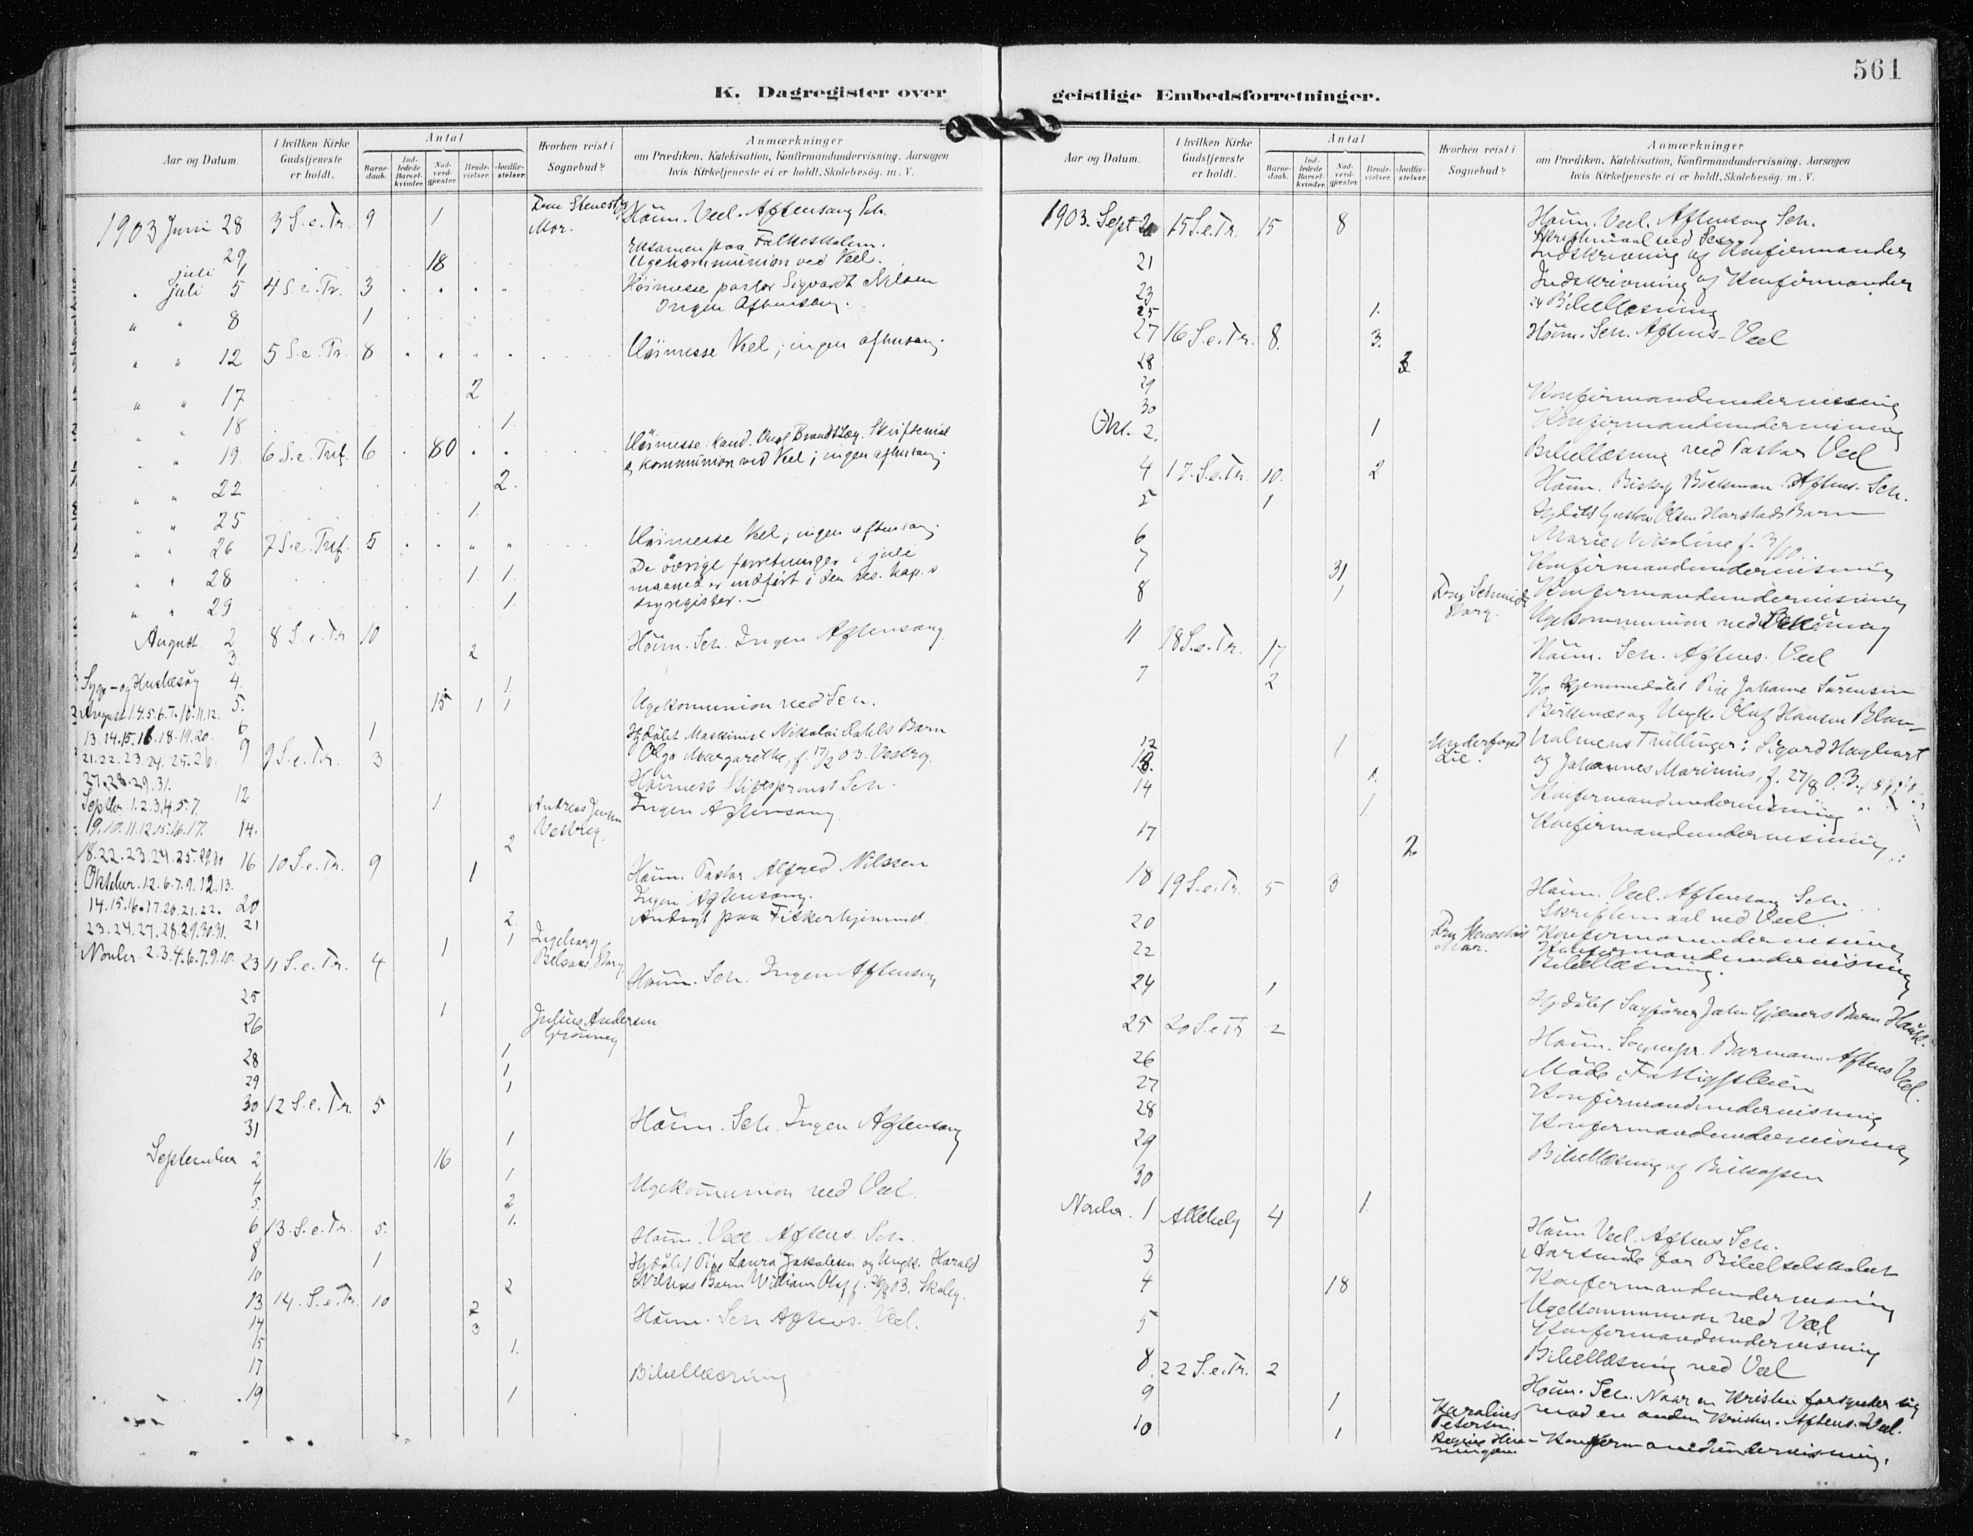 561
K. Dagregister over geistlige Embedsforretninger.
Aar og Datum.
I hvilken Kirke Gudstjeneste er holdt.
Antal
Barnedaab.
Indledede Barselkvinder.
Nadverdgjester.
Brudevielser.
Jordfæstelser.
Hvorhen reist i Sognebud?
Anmærkninger
om Prædiken, Katekisation, Konfirmandundervisning, Aarsagen
hvis Kirketjeneste ei er holdt, Skolebesøg m. V.
1903 Juni 28 3 S.e.Tr. 9 1 Mor. Høim. Veel. Aftensang Sch.
29 Examen paa Folkeskolen.
juli 1 18 Ugekommunion ved Veel.
" juli 5 4 S.e.Tr. 3 Høimesse pastor Sigvardt Nilsen
Ingen Aftensang.
" " 8 1
" " 12 5 S.e.Tr. 8 Høimesse Veel; ingen aftensang.
" " 17 2
" " 18 1.
" " 19 6 S.e.Trf. 6 80 Høimesse Kand. Skriftemaal
og kommunion ved Veel; ingen aftensang.
" " 22 2.
" " 25 1
" " 26 7 S.e.Trf. 5 Høimesse Veel; ingen aftensang.
De øvrige forretninger i juli
" " 28 1 1. maaned er indført i den res. kap.s
" " 29 1. dagregister.—
August 2 8 S.e.Tr. 10 Høim. Sch. Ingen Aftensang.
3. 2
Syge- og Husbesøg 4. 1.
August 1.4.5.6.7.10.11.12. 5. 15 1 1 Ugekommunion ved Sch.
13.14.15.16.18.19.20. 6 1 Hjdøbt Maskinist Nikolai Dahls Barn
21.22.23.24.25.26. 9 9 S.e.Tr. 3 Olga Margarethe, f. 17/2 03. Vestrg.
27.28.29.31. Sch.
Septbr. 1.2.3.4.5.7 12 1 Andreas Jensen Ingen Aftensang.
9.10.11.12.15.16.17. 14. 2 Vestreg.
18.22.23.24.25. 16 10 S.e.Tr. 9 1 Høim. Pastor Alfred Nilssen
Oktober. 1.2.6.7.9.12.13. Ingen Aftensang.
14.15.16.17.20.21.22. 20 2. Andagt paa Fiskerhjemmet.
23.24.27.28.29.30.31. 21 1 Ingeborg
Novbr. 2.3.4.6.7.9.10. 23 11 S.e.Tr. 4 1 Høim. Sch. Ingen Aftensang
25
26 1 Julius Andersen
Grønneg
28 1
29 1
30 12 S.e.Tr. 5 1 Høim. Sch. Ingen Aftensang
31 1
September 2 16
4 1 Ugekommunion ved Veel.
5. 2
6 13. S.e.Tr. 5. 1. Høim. Veel. Aftens. Sch.
8 1 Hjdøbt Pige Laura Jakobsen og Ungk. Harald
10 2 Nilsens Barn William Olaf f. 26/8 03. Skoleg.
13 14. S.e.Tr. 10 2 Høim. Sch. Aftens. Veel.
14 3
15 1.
17 Bibellæsning
19 1
1903. Sept 20 15 S.e.Tr. 15 8 Høim. Veel. Aftensang Sch.
Skriftemaal ved Sch.
21 Indskrivning af Konfirmander
23 Indskrivning af Konfirmander
25 1. 24 Bibellæsning
27 16 S.e.Tr. 8. 3. Høim. Sch. Aftens. Veel
28 3
29 Konfirmandundervisning
30 Konfirmandundervisning
Okt. 2. 1 Bibellæsning ved Pastor Veel
4 17. S.e.Tr. 10. 2 Høim. Biskop Bøckman. Aftens. Sch.
5 1 Hjdøbt Gustav Olsen Harstads Barn
6 Marie Nikoline f. 3/10.
7 31 Konfirmandundervisning
8 1 Fru Schmidt Storg. Konfirmandundervisning
Ugekommunion ved
11 18 S.e.Tr. 17 Høim. Sch. Aftens. Veel
7 2 7/10 Hjemmedøbt Pige Johanne Sørensen
og Ungk. Oluf Hansen
12 1 Underfoged Lie. Tvillinger: Sigurd Hagbart
13. 1. og Johannes Marinius, f. 27/8 03.
14 1 Konfirmandundervisning
17 2 Konfirmandundervisning
18 19 S.e.Tr. 5 3 Høim. Veel. Aftensang Sch.
Skriftemaal ved Veel
20 Konfirmandundervisning
22 Konfirmandundervisning
Bibellæsning.
24 1 Hjdøbt Sagfører John Gjævers Barn
25 20 S.e.Tr 2 Høim. Sognepr. Aftens Veel.
26 Møde i Fattigpleien
27 Konfirmandundervisning
28 Konfirmandundervisning
29 Bibellæsning af Biskopen
30
Novbr. 1 Allehelg 4 1. Høim Veel. Aftens Sch.
3 Aarsmøde for Bibelselskabet
4 18 Konfirmandundervisning
Ugekommunion ved Veel
5 Konfirmandundervisning
Bibellæsning ved Veel
8. 22 S.e.Tr. 2 Høim. Sch. Naar en Kristen forsynder sig
9 1 Karolines Petersen mod en anden Kristen. Aftens. Veel.
10 1 Konfirmandundervisning.